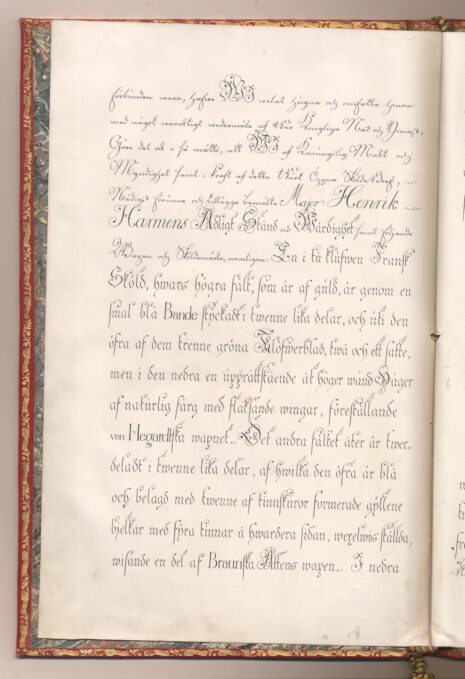 förbunden wara, hafwe WI welat hugna och omfatta honom
med något wärckligt wedermäle af Wår Konglige Nåd och Ynnest;
Giöre det ock i så måtto, att WI af Konungslig Macht och
Myndighet samt i kraft af detta Wårt Öppne Sköldebref,
Nådigst förunne och tillägge bemälte Major Henrik
Harmens Adligt Stånd och Wärdighet samt följande
Wapen och Sköldemärke, nemligen: En i tu klufwen Fransk
Sköld, hwars högra fält, som är af guld, är genom en
smal blå Bande styckadt i twenne lika delar, och uti den
öfra af dem trenne gröna Klöfwerblad, twå och ett satte,
men i den nedra en upprättstående åt höger wänd Häger
af naturlig färg med flaksande wingar, föreställande
von Hegardtska wapnet. Det andra fältet åter är twer-
deladt i twenne lika delar, af hwilka den öfra är blå
och belagd med twenne af tinnskuror formerade gyllene
bjelkar med fyra tinnar å hwardera sidan, wexelwis ställda,
wisande en del af Braunska Ättens wapen. I nedra